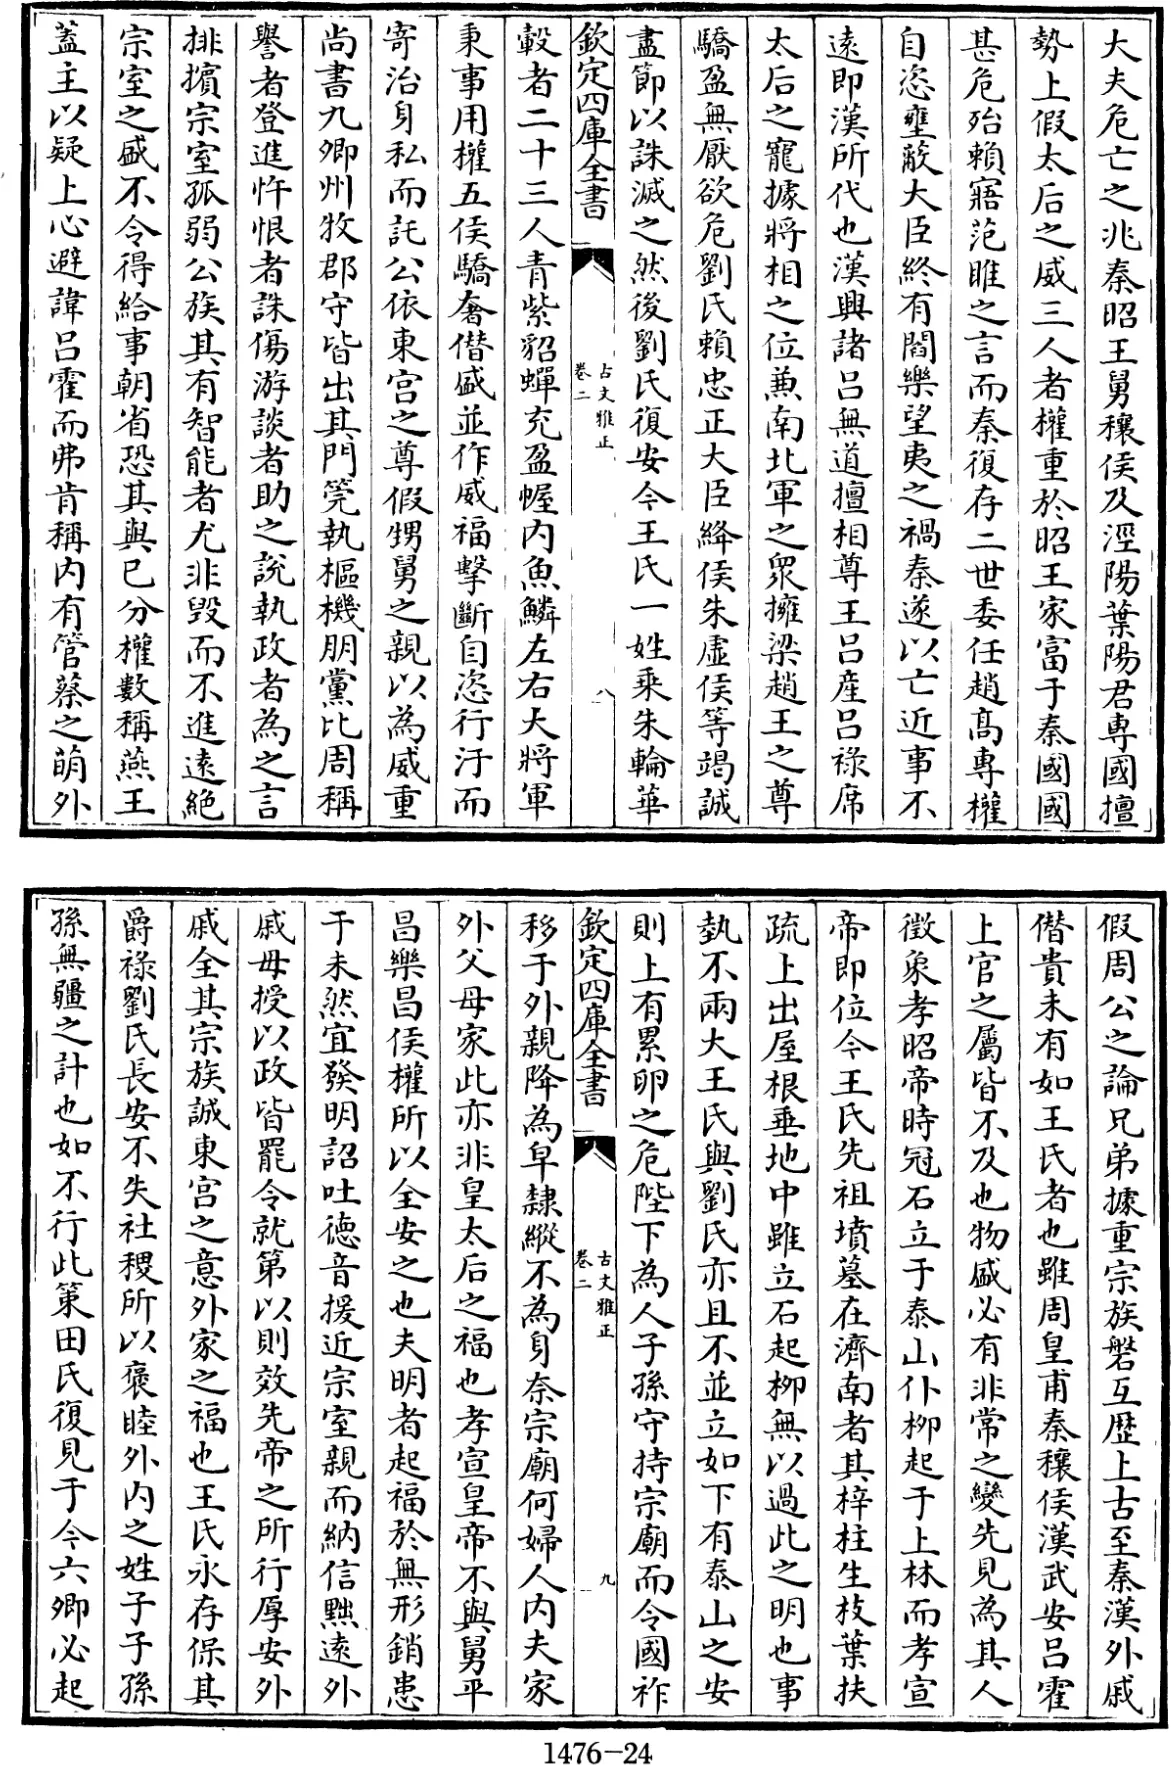 大夫危亡之兆秦昭王舅穰侯及涇陽葉陽君專國擅
勢上假太后之威三人者權重於昭王家富于秦國國
甚危殆賴寤范睢之言而秦復存二世委任趙髙專權
自恣壅蔽大臣終有閻樂望夷之禍秦遂以亡近事不
遠即漢所代也漢興諸呂無道擅相尊王呂產呂祿席
太后之寵據將相之位兼南北軍之眾擁梁趙王之尊
驕盈無厭欲危劉氏賴忠正大臣絳侯朱虛侯等竭誠
盡節以誅滅之然後劉氏復安今王氏一姓乘朱輪華
欽定四庫全書
古文雅正
卷二
八
轂者二十三人青紫貂蟬充盈幄内魚鱗左右大將軍
秉事用權五侯驕奢僭盛並作威福擊斷自恣行汙而
寄治身私而託公依東宫之尊假甥舅之親以為威重
尚書九卿州牧郡守皆出其門筦執樞機朋黨比周稱
譽者登進忤恨者誅傷游談者助之說執政者為之言
排擯宗室孤弱公族其有智能者尤非毀而不進遠絶
宗室之盛不令得給事朝省恐其與已分權數稱燕王
蓋主以疑上心避諱呂霍而弗肯稱内有管蔡之萌外
假周公之論兄弟據重宗族磐互歴上古至秦漢外戚
僭貴未有如王氏者也雖周皇甫秦穰侯漢武安呂霍
上官之屬皆不及也物盛必有非常之變先見為其人
徵象孝昭帝時冠石立于泰山仆柳起于上林而孝宣
帝即位今王氏先祖墳墓在濟南者其梓柱生枝葉扶
疏上出屋根垂地中雖立石起柳無以過此之明也事
執不兩大王氏與劉氏亦且不並立如下有泰山之安
則上有累卵之危陛下為人子孫守持宗廟而令國祚
欽定四庫全書
古文雅正
卷二
九
移于外親降為皁隸縱不為身奈宗廟何婦人内夫家
外父母家此亦非皇太后之福也孝宣皇帝不與舅平
昌樂昌侯權所以全安之也夫明者起福於無形銷患
于未然宜發明詔吐德音援近宗室親而納信黜遠外
戚毋授以政皆罷令就第以則效先帝之所行厚安外
戚全其宗族誠東宫之意外家之福也王氏永存保其
爵祿劉氏長安不失社稷所以褒睦外内之姓子子孫
孫無疆之計也如不行此策田氏復見于今六卿必起
1476-24